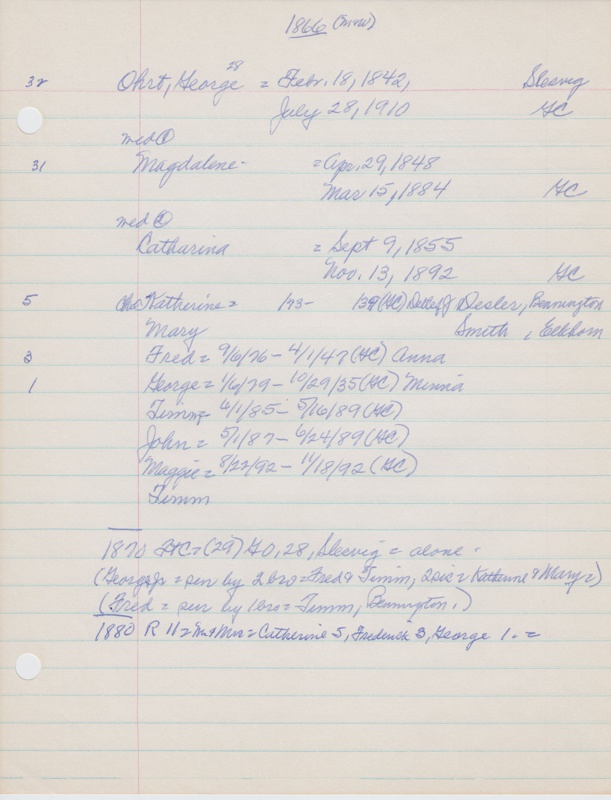 1866
28
32 Ohrt, George = Febr. 18, 1842, Slesvig
July 28, 1910 GC
med ①
31 Magdalene- = Apr. 29, 1848
Mar 15, 1884 GC
med ②
Catharina = Sept 9, 1855
Nov. 13, 1892 GC
5 Katherine = 1/73- 1/39 (GC) Detlef J Desler, Bennington
Mary Smith, Elkhorn
3 Fred = 9/6/76 - 4/1/47 (GC) Anna
1 George = 1/6/79 - 10/29/35 (GC) Minna
Timm = 6/1/85 - 5/16/89 (GC)
John = 5/1/87 - 6/24/89 (GC)
Maggie = 8/22/92 - 11/18/92 (GC)
Timm
1870 = (29) GO, 28, Slesvig = alone.
(George Jr = surv by 2 bro = Fred & Timm, 2 sis = Katherine & Mary =)
(Fred = surv by 1 bro = Timm, Bennington.)
1880 R 11 = Mr & Mrs = Catherine 5, Frederick 3, George 1. =